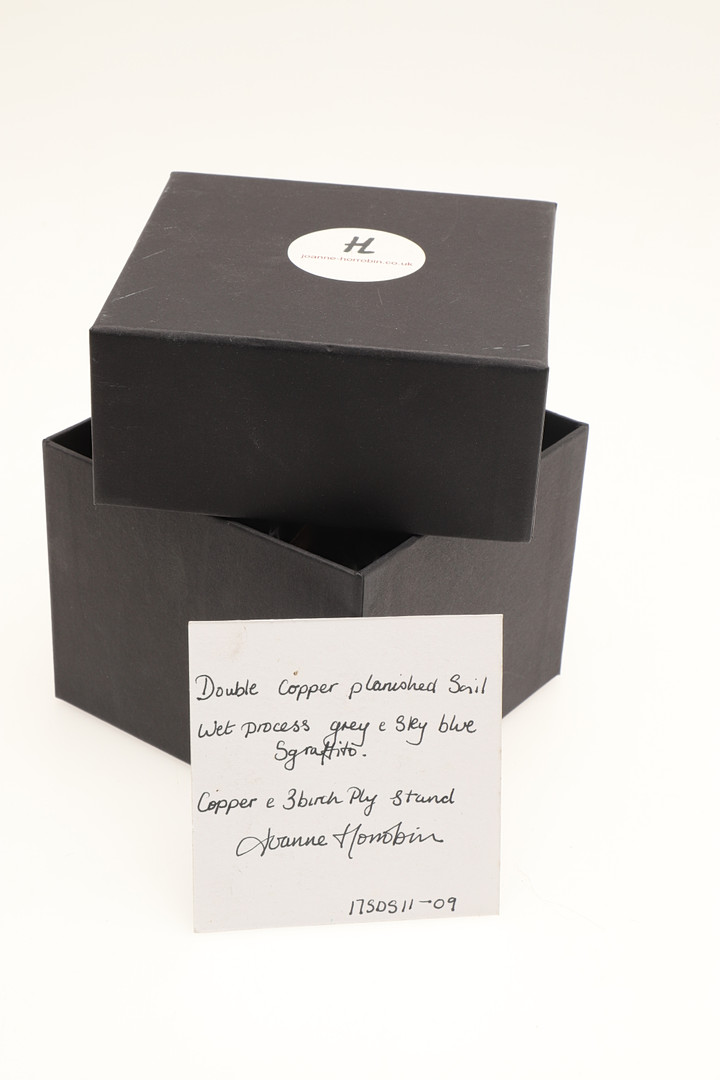 H
joanne-horrobin.co.uk
Double Copper planished Sail
Wet process grey & Sky blue
Sgraffito.
Copper & 3birch Ply Stand
Joanne Horrobin
17SDS11-09